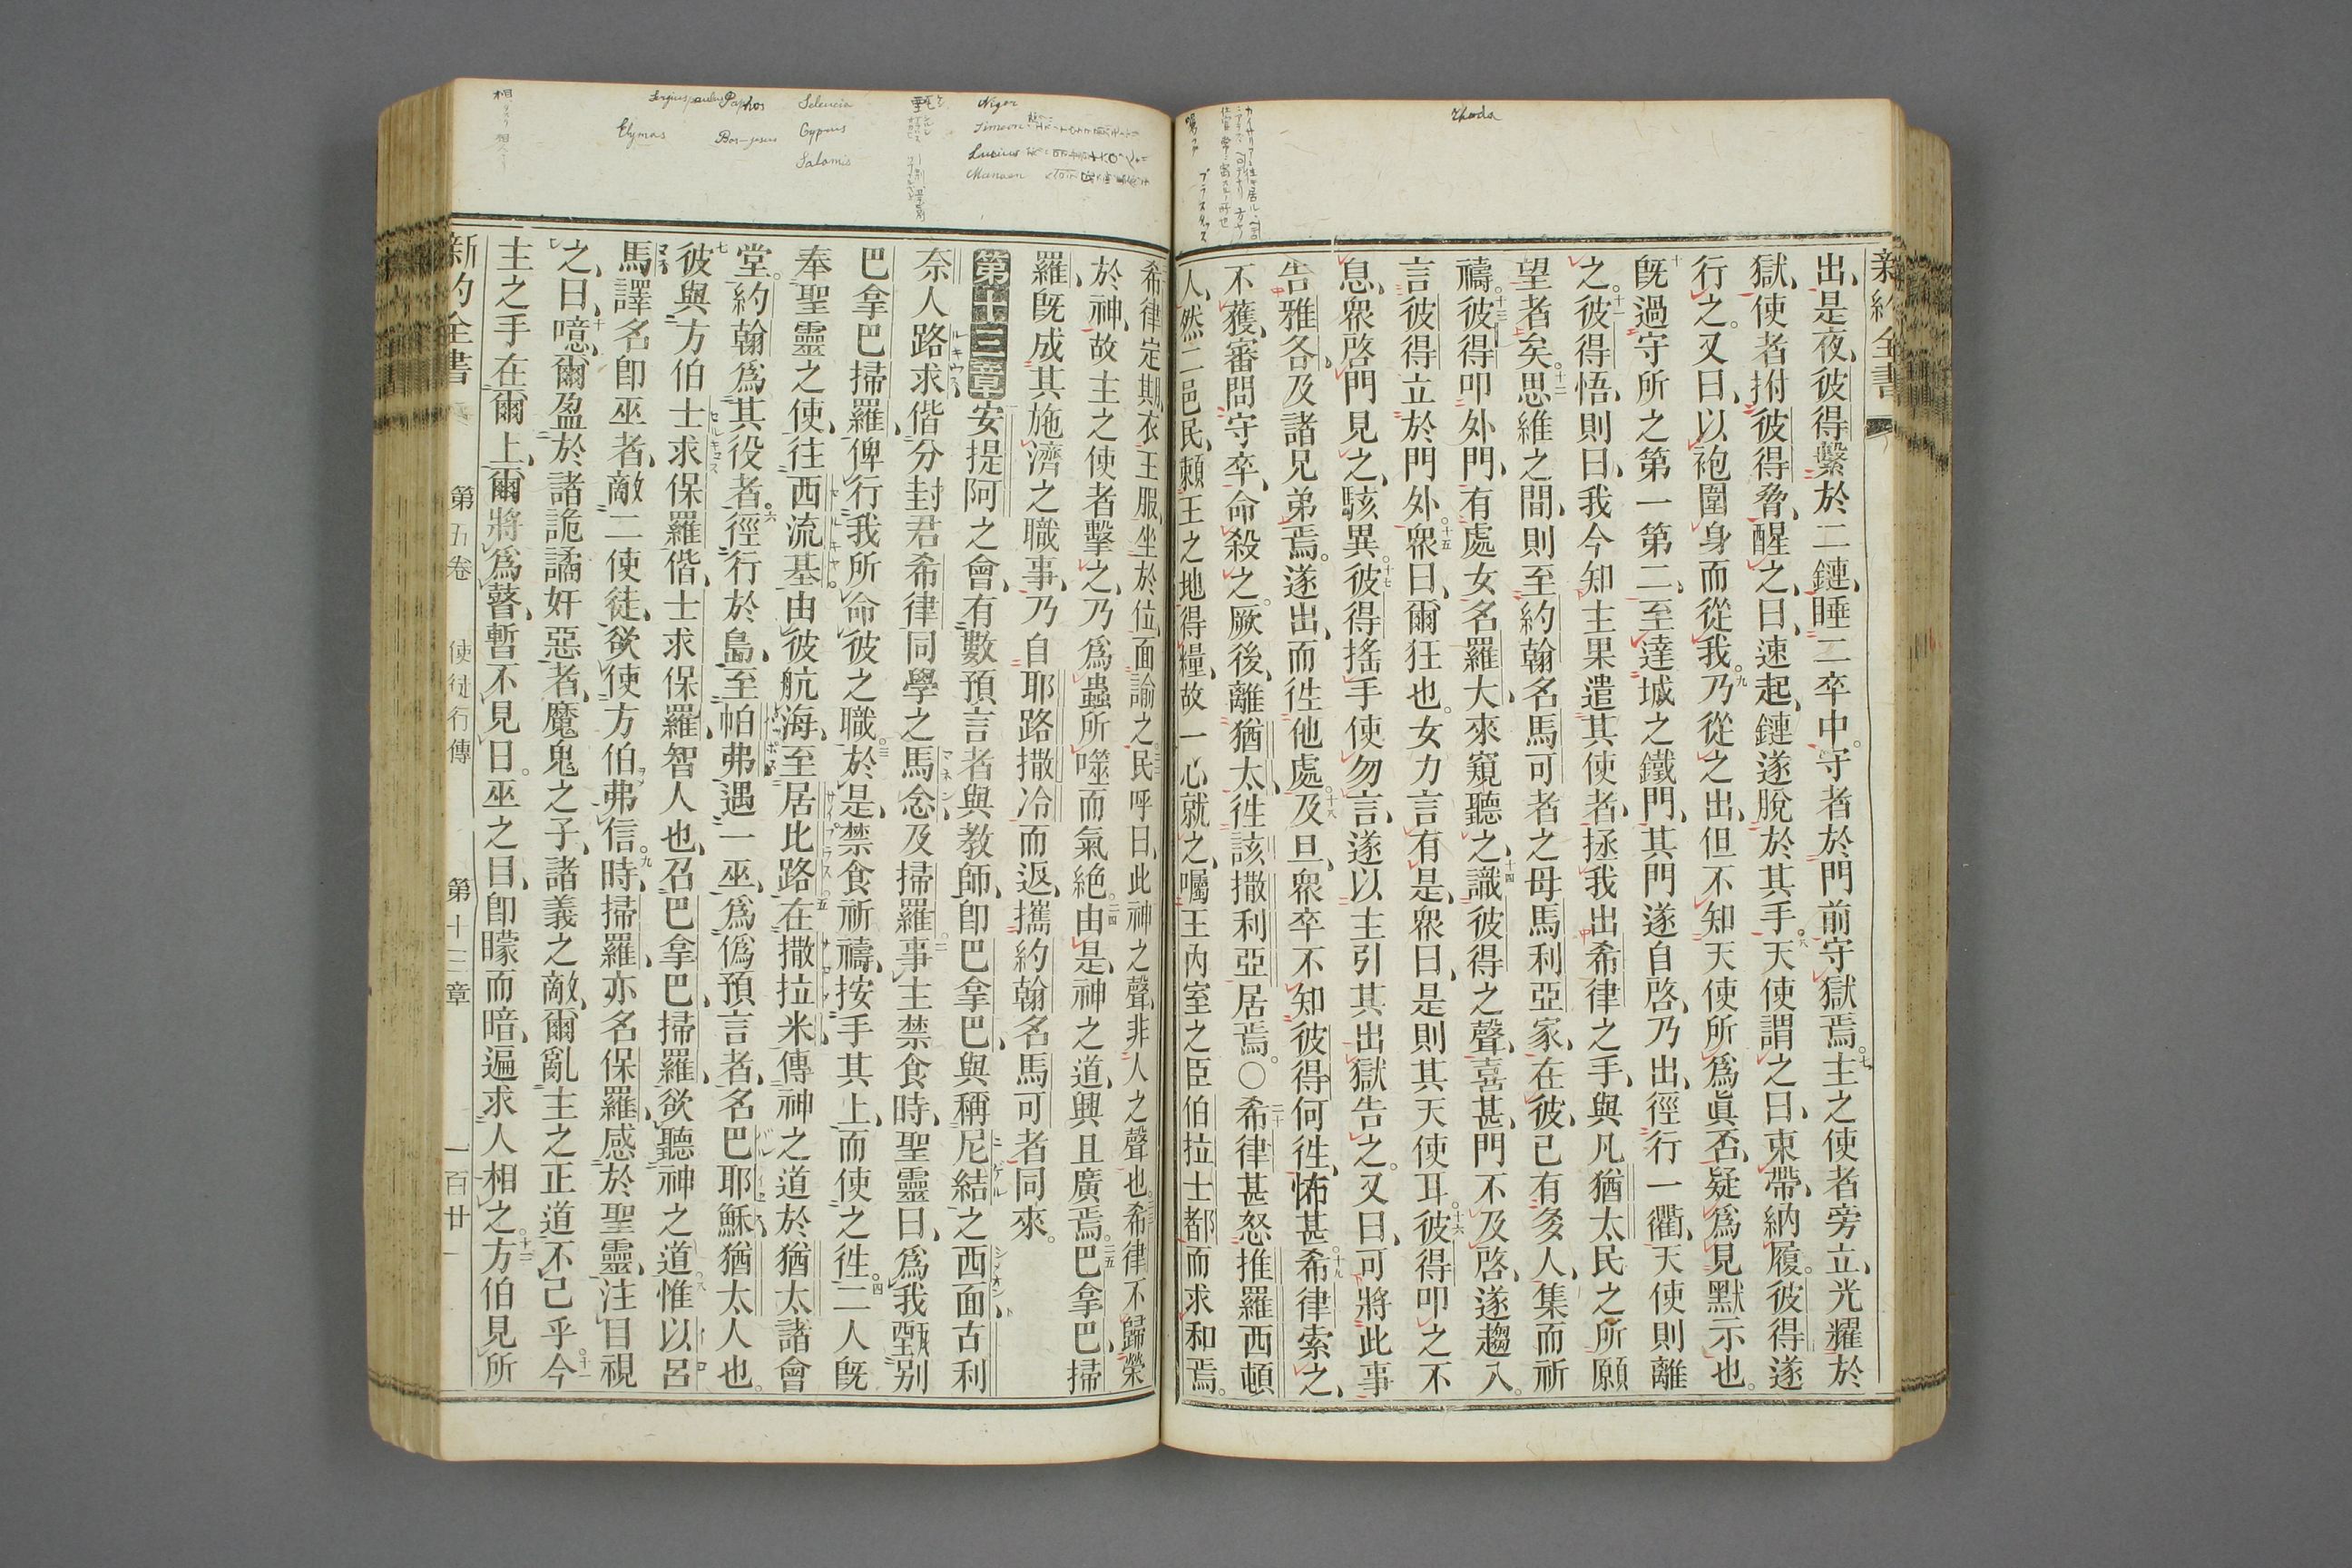 Rhoda
新約全書
出、是夜、彼得繫於二鏈、睡二卒中。守者於門前守獄焉。七主之使者旁立、光耀於
獄、使者拊彼得脅、醒之、曰、速起、鏈遂脫於其手。八天使謂之曰、束帶、納履。彼得遂
行之。又曰、以袍圍身而從我。九乃從之出、但不知天使所爲眞否、疑爲見默示也。
十旣過守所之第一第二、至達城之鐵門、其門遂自啓、乃出、徑行一衢、天使則離
之。十一彼得悟、則曰、我今知主果遣其使者、拯我出希律之手、與凡猶太民之所願
望者矣。十二思維之間、則至約翰名馬可者之母馬利亞家、在彼、已有多人、集而祈
禱。十三彼得叩外門、有處女名羅大、來窺聽之、十四識彼得之聲、喜甚、門不及啓、遂趨入。
言彼得立於門外。十五衆曰、爾狂也。女力言有是、衆曰、是則其天使耳。十六彼得叩之不
息、衆啓門見之、駭異。十七彼得搖手使勿言、遂以主引其出獄告之。又曰、可將此事
告雅各、及諸兄弟焉。遂出、而徃他處。十八及旦、衆卒不知彼得何徃、怖甚。十九希律索之、
不獲、審問守卒、命殺之。厥後、離猶太、徃該撒利亞居焉。〇二十希律甚怒推羅西頓
人、然二邑民、賴王之地得糧、故一心就之、囑王內室之臣伯拉士都、而求和焉。
Niger
Simeon
Lucius
Manaen
Seleucia
Cyprus
Salamis
Paphos
Bar-jesus
Sergius paulus
Elymas
希律定期、衣王服、坐於位、面諭之。二二民呼曰、此神之聲、非人之聲也。二三希律不歸榮
於神、故主之使者擊之、乃爲蟲所噬而氣絶。二四由是、神之道、興且廣焉。二五巴拿巴、掃
羅、旣成其施濟之職事、乃自耶路撒冷而返、攜約翰名馬可者同來。
第十三章 安提阿之會、有數預言者與教師、卽巴拿巴、與稱尼結之西面、古利
奈人路求、偕分封君希律同學之馬念、及掃羅。二事主禁食時、聖靈曰、爲我甄別
巴拿巴掃羅、俾行我所命彼之職。三於是、禁食祈禱、按手其上、而使之徃。四二人旣
奉聖靈之使、往西流基、由彼航海、至居比路。五在撒拉米、傳神之道於猶太諸會
堂。約翰爲其役者。六徑行於島、至帕弗、遇一巫、爲僞預言者、名巴耶穌、猶太人也。
七彼與方伯士求保羅偕、士求保羅、智人也、召巴拿巴、掃羅、欲聽神之道。八惟以呂
馬、譯名卽巫者、敵二使徒、欲使方伯弗信。九時、掃羅、亦名保羅、感於聖靈、注目視
之、曰、十噫、爾盈於諸詭譎奸惡者、魔鬼之子、諸義之敵、爾亂主之正道、不已乎。十一今
主之手在爾上、爾將爲瞽、暫不見日。巫之目、卽矇而暗、遍求人相之。十二方伯見所
新約全書 第五卷 使徒行傳 第十三章 一百廿一